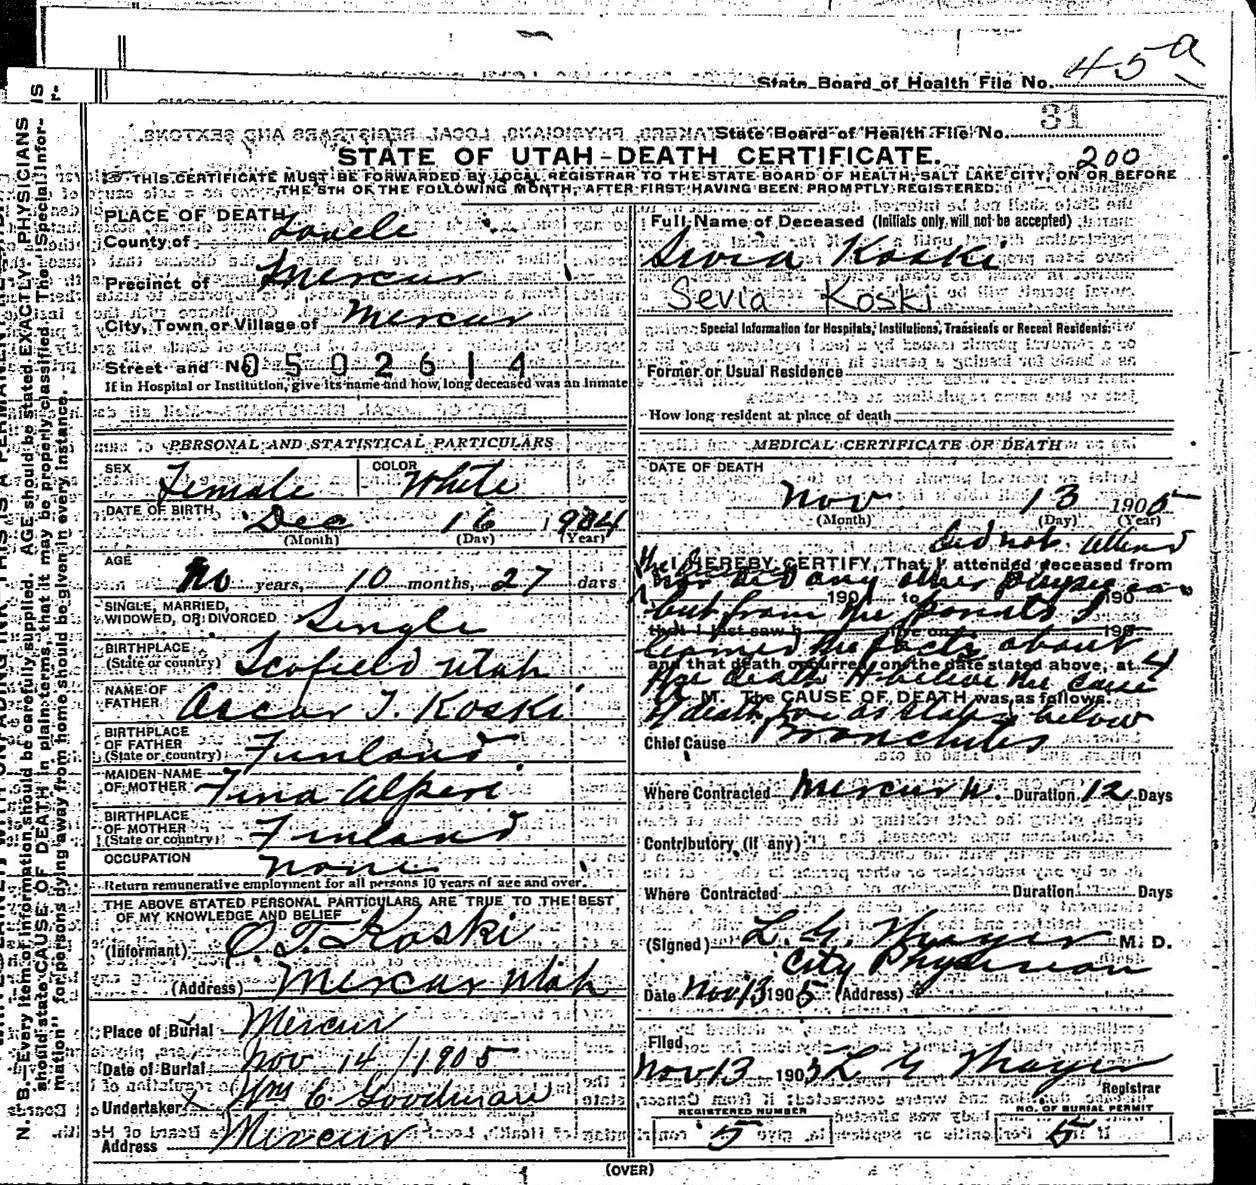 45a
State Board of Health File No.
State Board of Health File No. 31
STATE OF UTAH-DEATH CERTIFICATE. 200
THIS CERTIFICATE MUST BE FORWARDED BY LOCAL REGISTRAR TO THE STATE BOARD OF HEALTH, SALT LAKE CITY, ON OR BEFORE
THE 5TH OF THE FOLLOWING MONTH, AFTER FIRST HAVING BEEN PROMPTLY REGISTERED.
PLACE OF DEATH
County of
Precinct of Mercur
City, Town or Village of Mercur
Street and No. 0502614
If in Hospital or Institution, give its name and how long deceased was an inmate
PERSONAL AND STATISTICAL PARTICULARS
SEX Female COLOR White
DATE OF BIRTH Dec 16 1904
(Month) (Day) (Year)
AGE No years, 10 months, 27 days
SINGLE, MARRIED,
WIDOWED, OR DIVORCED Single
BIRTHPLACE
(State or country) Scofield Utah
NAME OF
FATHER Oscar T. Koski
BIRTHPLACE
OF FATHER
(State or country) Finland
MAIDEN NAME
OF MOTHER Fina
BIRTHPLACE
OF MOTHER
(State or country) Finland
OCCUPATION None
Return remunerative employment for all persons 10 years of age and over.
THE ABOVE STATED PERSONAL PARTICULARS ARE TRUE TO THE BEST
OF MY KNOWLEDGE AND BELIEF
(Informant) O. T. Koski
(Address) Mercur Utah
Place of Burial Mercur
Date of Burial Nov 14 / 1905
Undertaker Wm C. Goodman
Address Mercur
Full Name of Deceased (Initials only will not be accepted)
Sevia Koski
Sevia Koski
Special Information for Hospitals, Institutions, Transients or Recent Residents.
Former or Usual Residence
How long resident at place of death
MEDICAL CERTIFICATE OF DEATH
DATE OF DEATH
Nov. 13 1905
(Month) (Day) (Year)
did not attend
I HEREBY CERTIFY, That I attended deceased from
nor did any other physician
190 to 190
but from the parents I
learned the facts about
and that death occurred, on the date stated above, at 4
the death & believe the cause
A M. The CAUSE OF DEATH was as follows.
of death was as stated below
Chief Cause Bronchitis
Where Contracted Mercur U. Duration 12 Days
Contributory (if any)
Where Contracted Duration Days
(Signed) L. G. Thayer M. D.
City Physician
Date Nov 13 1905 (Address)
Filed
Nov 13 1905 L G Thayer
Registrar
REGISTERED NUMBER
5
NO. OF BURIAL PERMIT
5
(OVER)
N. B.—Every item of information should be carefully supplied. AGE should be stated EXACTLY. PHYSICIANS
should state CAUSE OF DEATH in plain terms, that it may be properly classified. The "Special Infor-
mation" for persons dying away from home should be given in every instance.